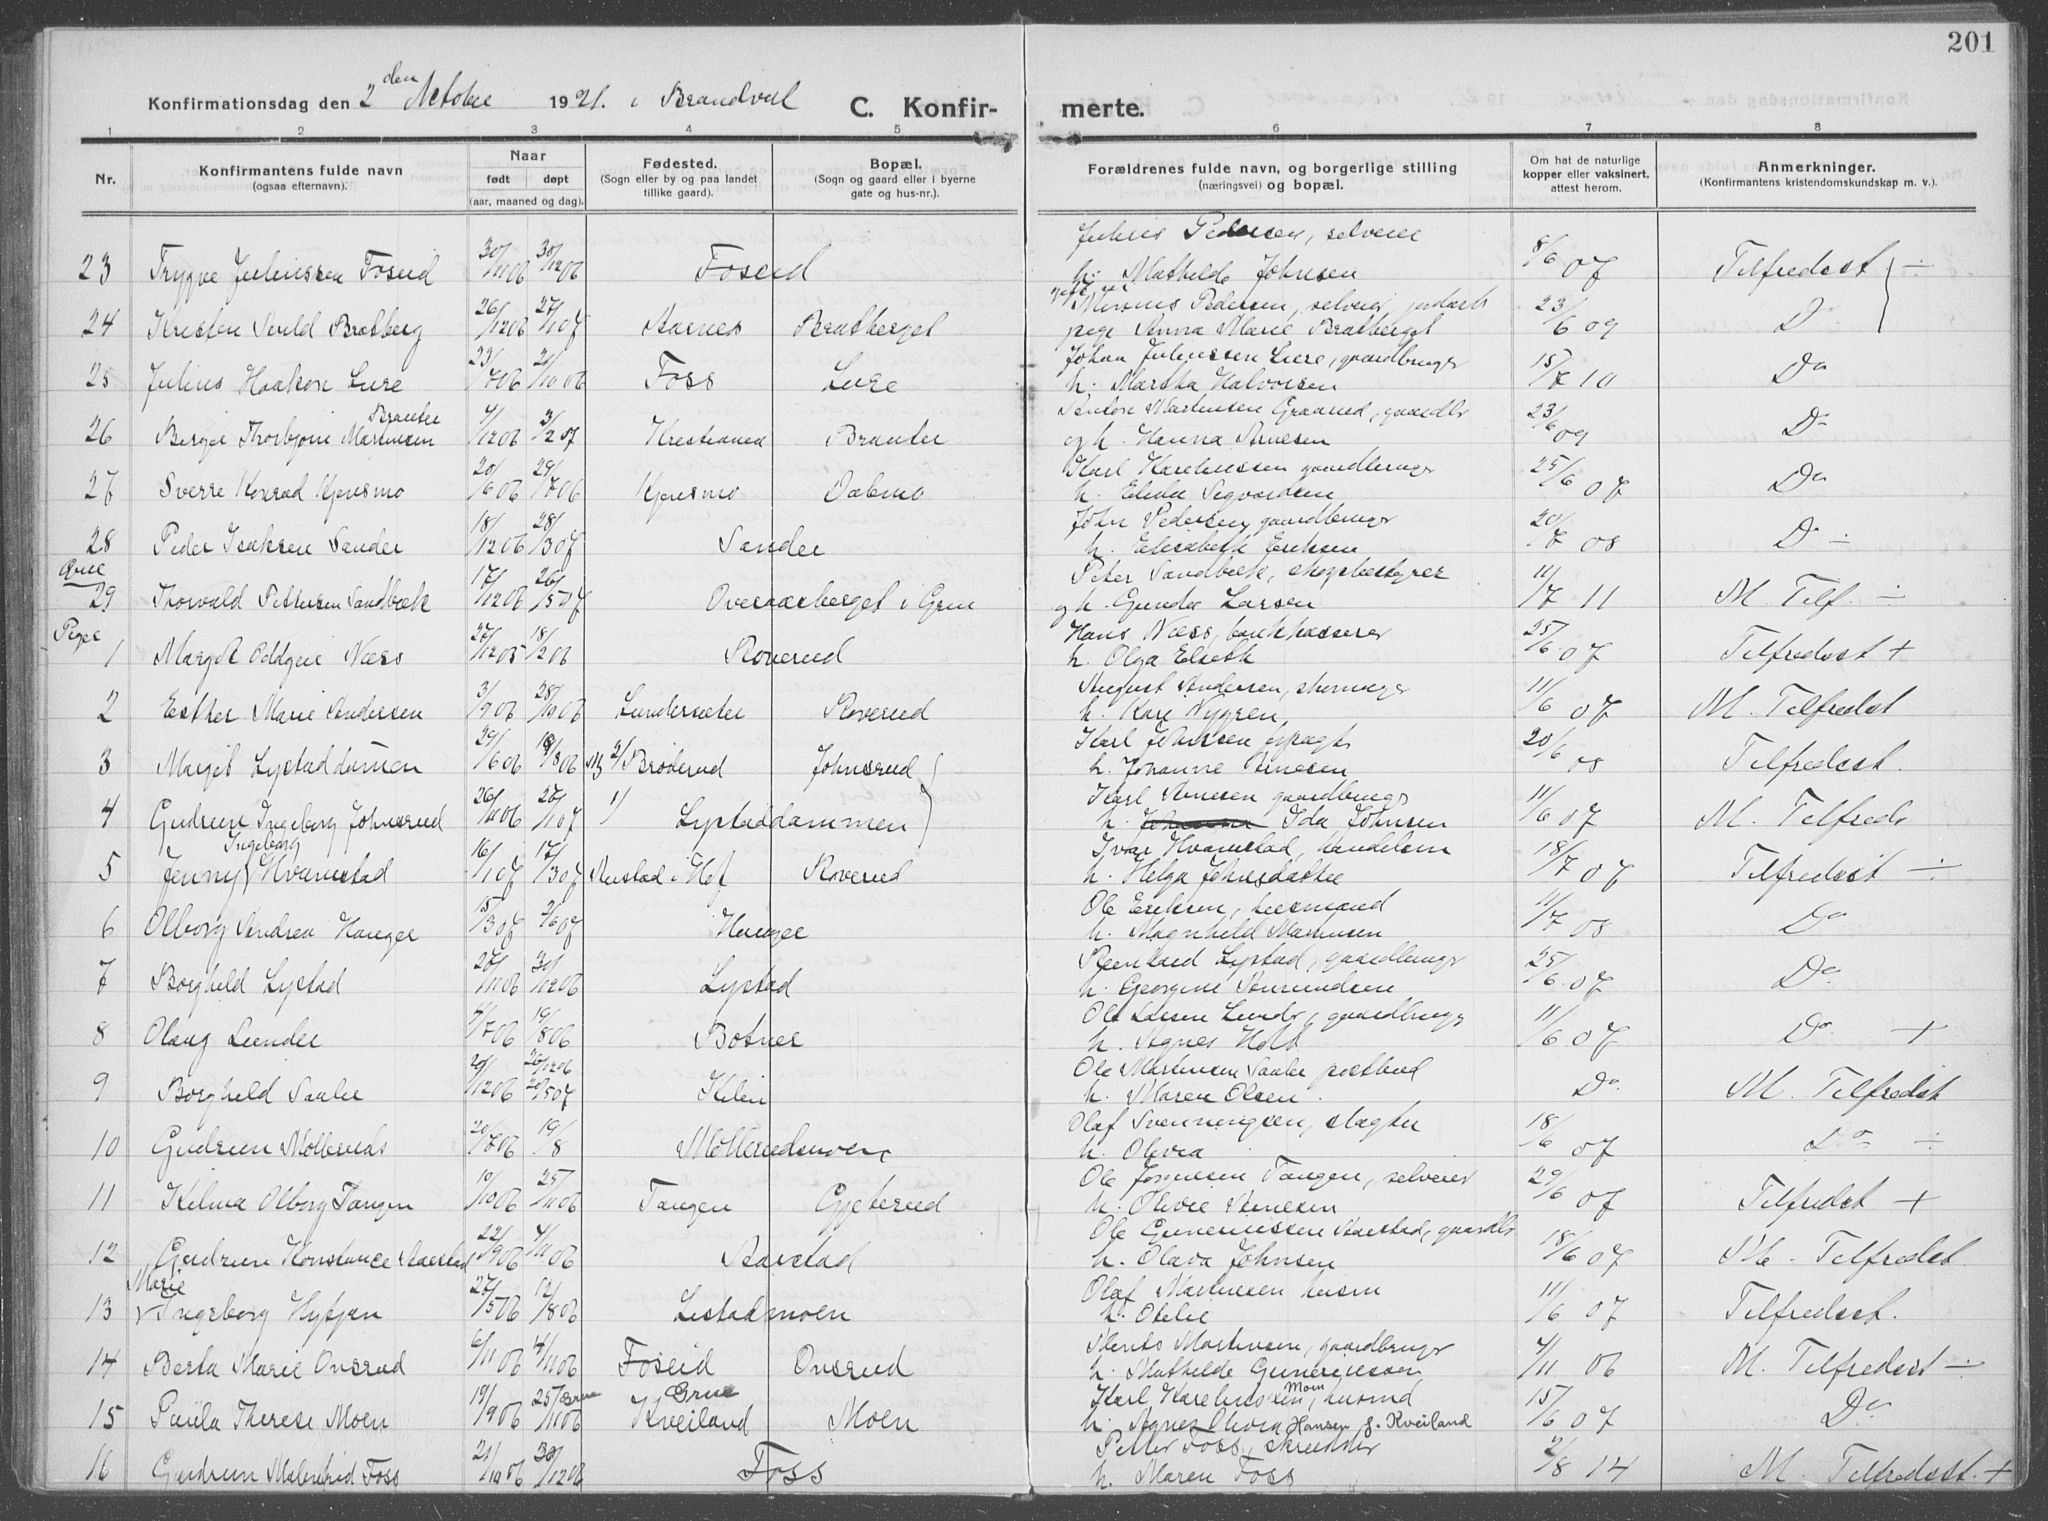 201
Konfirmationsdag den 2den October 1921. i Brandval
C. Konfir- merte.
1 2 3 4 5 6 7 8
Nr.
Konfirmantens fulde navn
(ogsaa efternavn).
Naar
født
døpt
(aar, maaned og dag).
Fødested.
(Sogn eller by og paa landet
tillike gaard).
Bopæl.
(Sogn og gaard eller i byerne
gate og hus-nr.).
Forældrenes fulde navn, og borgerlige stilling
(næringsvei) og bopæl.
Om hat de naturlige
kopper eller vaksinert,
attest herom.
Anmerkninger.
(Konfirmantens kristendomskundskap m. v.).
Julius Pedersen, selveier
23 Trygve Juliussen Foseid 30/11 06 30/12 06 Foseid h. Mathilde Johnsen 8/6 07 Tilfredsst ÷
Pedersen, selveier
24 Bratberg 26/12 06 27/1 07 Aarnes Bratberget pige Anna Marie Bratberget 23/6 09 Do
Johan Juliussen Lure, gaardbruger
25 Julius Haakon Lure 23/7 06 21/10 06 Foss Lure h. Martha Halvorsen 15/7 10 Do
Anton Martinsen gaardbr
Brauter
26 Birger Thorbjørn Martinsen 4/12 06 3/2 07 Kristiania Brauter og h. Hanna Arnesen 23/6 09 Do
Karl Kareliussen gaardbruger
27 Sverre Konrad Kjensmo 20/6 06 29/7 06 Kjensmo Dalmo h. Elida Sigvardsen 25/6 07 Do
John Pedersen, gaardbruger
28 Peder Isaksen Sander 18/12 06 28/3 07 Sander h. Elisabeth Eriksen 20/7 08 Do ÷
Grue
Peter Sandbæk, skogbestyrer
29 Thorvald Pettersen Sandbæk 17/12 06 26/5 07 Overaasberget i Grue og h. Gunda Larsen 11/7 11 M. Tilf. ÷
Piger
Hans Næss, bankkasserer
1 Margit Oddgine Næss 27/12 05 18/2 06 Roverud h. Olga Elseth 25/6 07 Tilfredsst +
August Andersen, skomager
2 Esther Marie Andersen 3/9 06 28/10 06 Lundersæter Roverud h. Kari Nygren, 11/6 07 M. Tilfredst
Karl Johnsen
3 Margit Lystaddamen 29/6 06 19/8 06 2/ Brøderud Johnsrud h. Johanne Arnesen 20/6 08 Tilfredsst.
Karl Arnesen gaardbruger
4 Gudrun Ingeborg Johnsrud 26/11 06 27/1 07 1/ Lystaddammen h. Ida Johnsen 11/6 07 M. Tilfreds
Ingeborg
Ivar Hvamstad, handelsm
5 Jenny Hvamstad 16/1 07 17/3 07 i Hof Roverud h. Helga Johnsdatter 18/7 07 Tilfredsst ÷
Ole Eriksen, husmand
6 Olborg Andrea Hauger 15/3 07 2/6 07 Hauger h. Magnhild Magnusen 11/7 08 Do
Reinhard Lystad, gaardbruger
7 Borghild Lystad 27/11 06 30/12 06 Lystad h. Georgine Amundsen 25/6 07 Do
Ole Larsen Lunder, gaardbruger
8 Olaug Lunder 4/7 06 19/8 06 Botner h. Agnes Holt 11/6 07 Do +
Ole Martinsen Saaler postbud
26/12 06
9 Borghild Saaler 20/12 06 20/5 07 Kilen h. Maren Olsen Do M. Tilfredst
Olaf Svenningsen, slagter
10 Gudrun Møllerud 20/7 06 19/8 Møllerudmoen h. Olivia 18/6 07 Do ÷
Ole Jørgensen Tangen, selveier
11 Hilma Olborg Tangen 10/10 06 25/11 06 Tangen Gjeterud h. Olivie Arnesen 29/6 07 Tilfredst +
Ole Gunerussen Aarstad, gaardbr
12 Gudrun Konstance Aarstad 22/9 06 4/11 06 Aarstad h. Olava Johnsen 18/6 07 M. Tilfredst.
Marie
Olaf Martinsen husm
13 Ingeborg Hytjan 27/5 06 12/8 06 Listadmoen h. Otelie 11/6 07 Tilfredsst.
Martinsen, gaardbruger
14 Berta Marie Onsrud 6/11 06 4/11 06 Foseid Onsrud h. Mathilde Gunerussen 4/11 06 M. Tilfredsst ÷
Grue Karl Kareliussen Moen, husmd
15 Paula Therese Moen 19/9 06 25/11 06 Kveiland Moen h. Agnes Olivia Hansen f. Kveiland 15/6 07 Do
Petter Foss, skrædder
16 Gudrun Malmfrid Foss 21/10 06 30/12 06 Foss h. Maren Foss 2/8 14 M. Tilfredsst. +